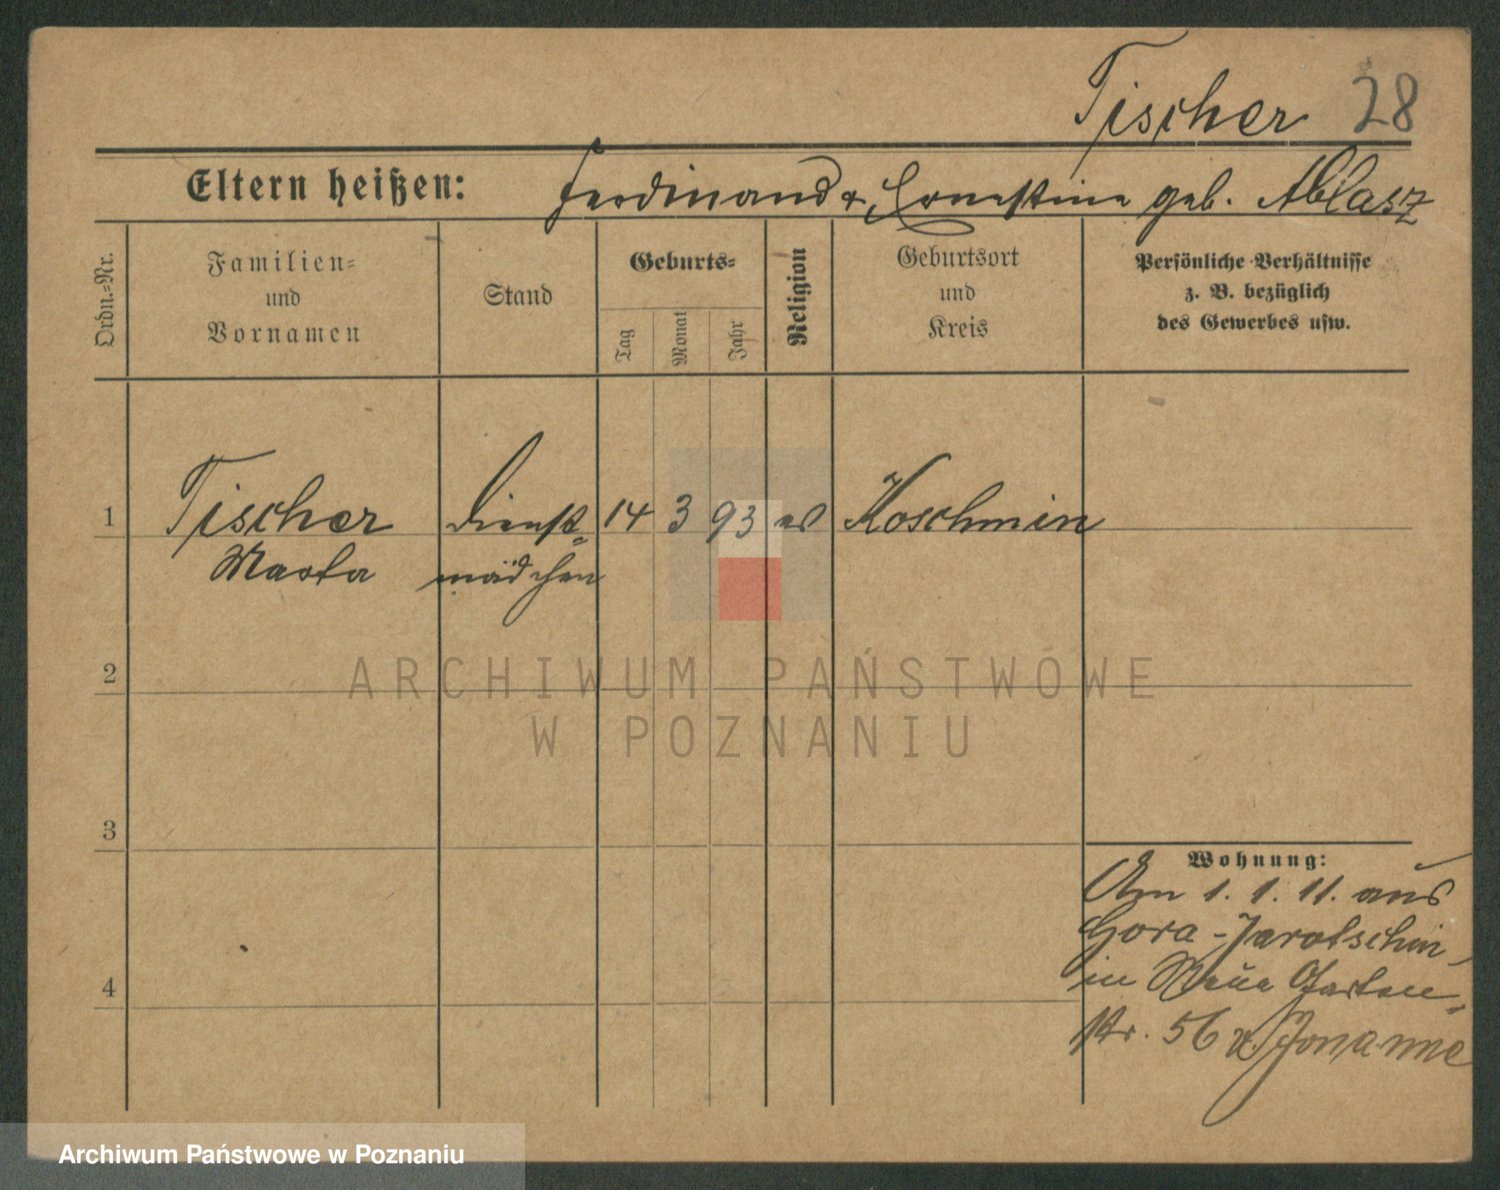 Tischer 28
Eltern heißen: Ferdinand & Ernestine geb. Ablasz
Ordn.-Nr.
Familien-
und
Vornamen
Stand
Geburts-
Tag
Monat
Jahr
Religion
Geburtsort
und
Kreis
Persönliche Verhältnisse
z. B. bezüglich
des Gewerbes usw.
1 Tischer Dienst- 14 3 93 ev Koschmin
Marta mädchen
2
ARCHIWUM PAŃSTWOWE
W POZNANIU
3
4
Wohnung:
Am 1. 1. 11. aus
Gora-Jarotschin
in Neue Garten-
str. 56 b.
Archiwum Państwowe w Poznaniu